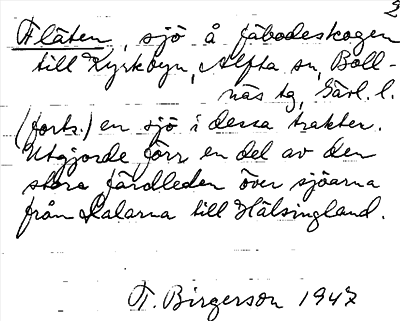 2
Fläten, sjö å fäbodeskogen
till Kyrkbyn, Alfta sn, Boll-
näs tg, Gävl. l.
(forts.) en sjö i dessa trakter.
Utgjorde förr en del av den
stora färdleden över sjöarna
från Dalarna till Hälsingland.
T. Birgerson 1947